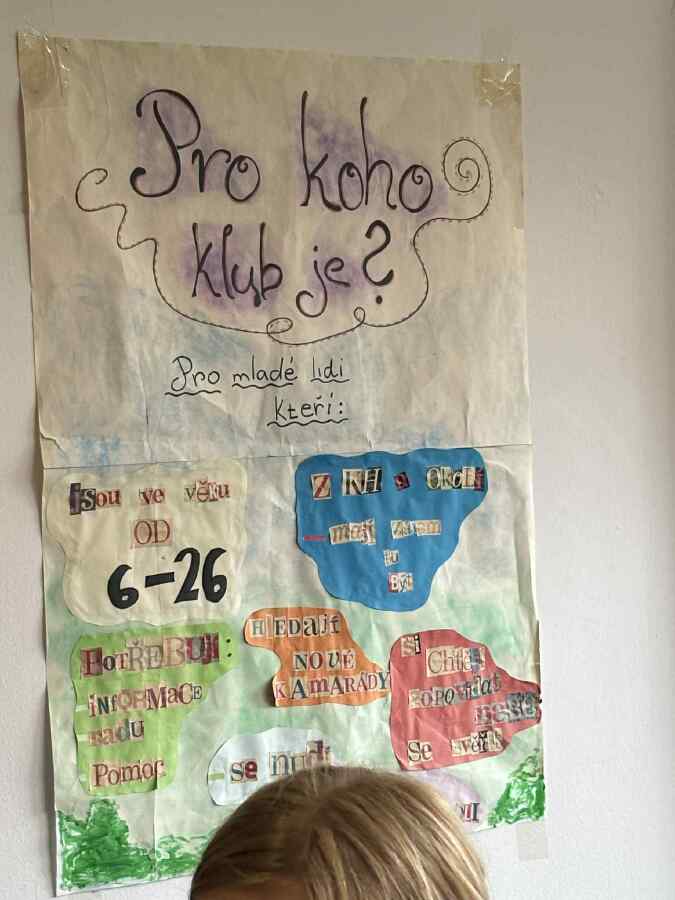 Pro koho
klub je?
Pro mladé lidi
kteří:
jsou ve věku
OD
6-26
Z KH a OKOLÍ
- mají zájem
tu
Být
POTŘEBUJÍ:
- iNFORMACE
- radu
- Pomoc
HLEDAJÍ
NOVÉ
KAMARÁDY
Si
Chtějí
POPOVÍDAT
nebo
Se svěřit
- se nudí